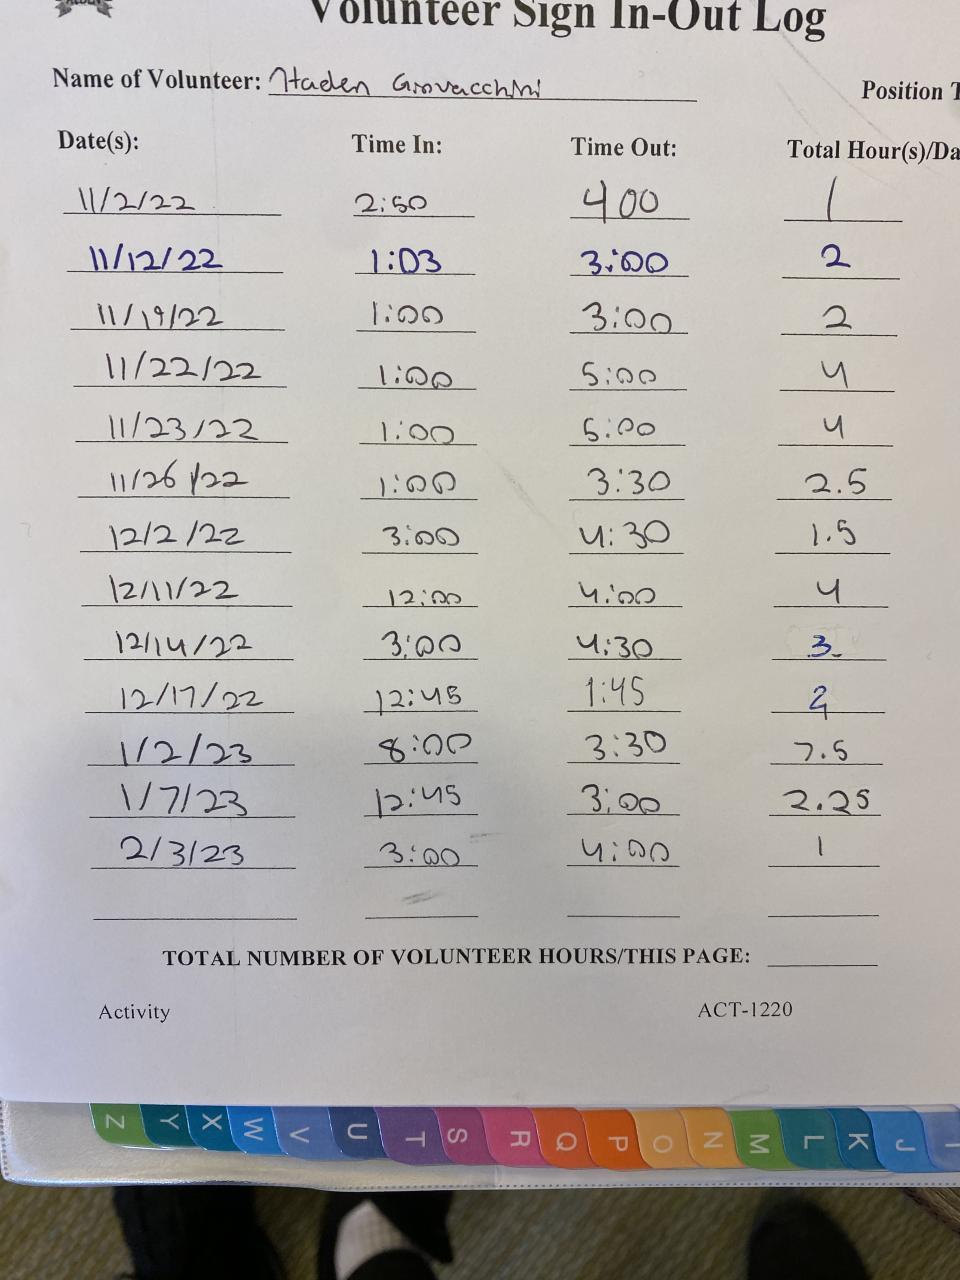 Volunteer Sign In-Out Log
Name of Volunteer: Haden Giovacchini
Position T
Date(s): Time In: Time Out: Total Hour(s)/Da
11/2/22 2:50 400 1
11/12/22 1:03 3:00 2
11/19/22 1:00 3:00 2
11/22/22 1:00 5:00 4
11/23/22 1:00 5:00 4
11/26/22 1:00 3:30 2.5
12/2/22 3:00 4:30 1.5
12/11/22 12:00 4:00 4
12/14/22 3:00 4:30 3
12/17/22 12:45 1:45 2
1/2/23 8:00 3:30 7.5
1/7/23 12:45 3:00 2.25
2/3/23 3:00 4:00 1
TOTAL NUMBER OF VOLUNTEER HOURS/THIS PAGE:
Activity ACT-1220
Z Y X W V U T S R Q P O N M L K J I